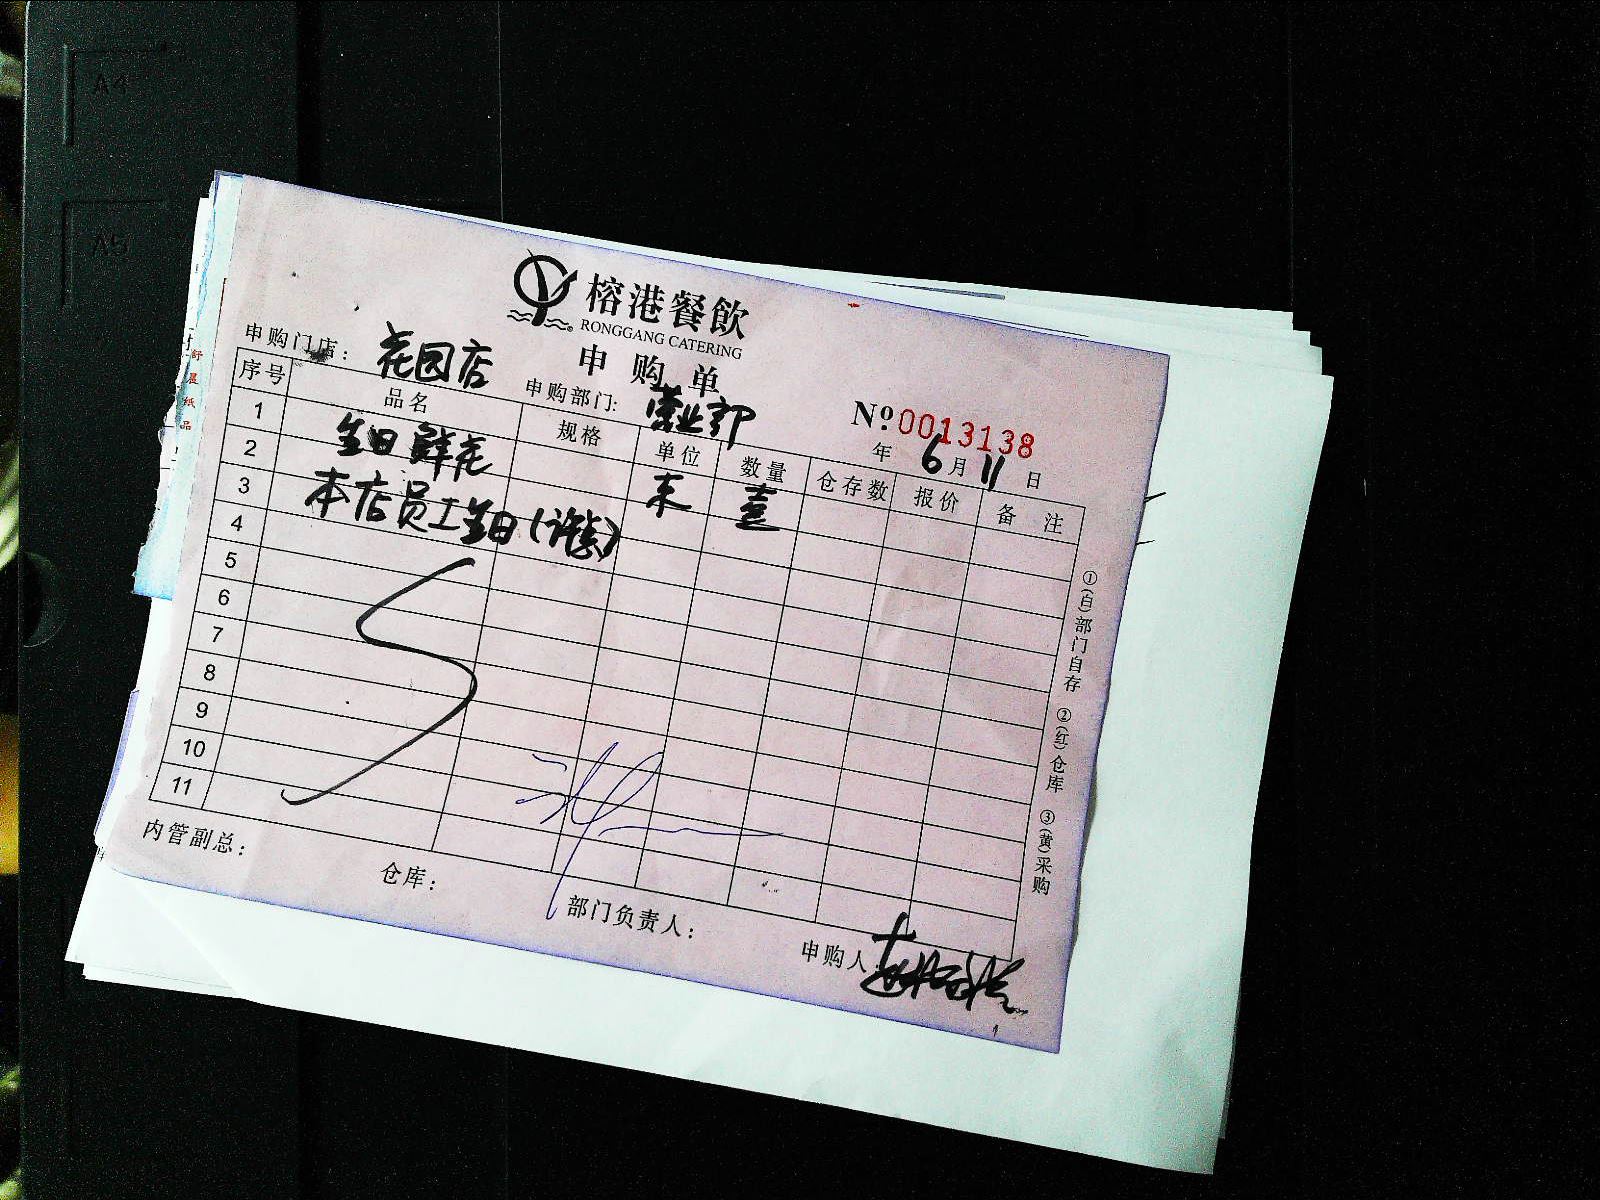 A4
A5
舒晨纸品
榕港餐飲
RONGGANG CATERING
申购单
申购门店： 花园店
申购部门: 营业部
Nº 0013138
年 6 月 11 日
序号 品名 规格 单位 数量 仓存数 报价 备注
1 生日鲜花 束 壹
2 本店员工生日
3
4
5
6
7
8
9
10
11
①(白)部门自存 ②(红)仓库 ③(黄)采购
内管副总：
仓库：
部门负责人：
申购人: